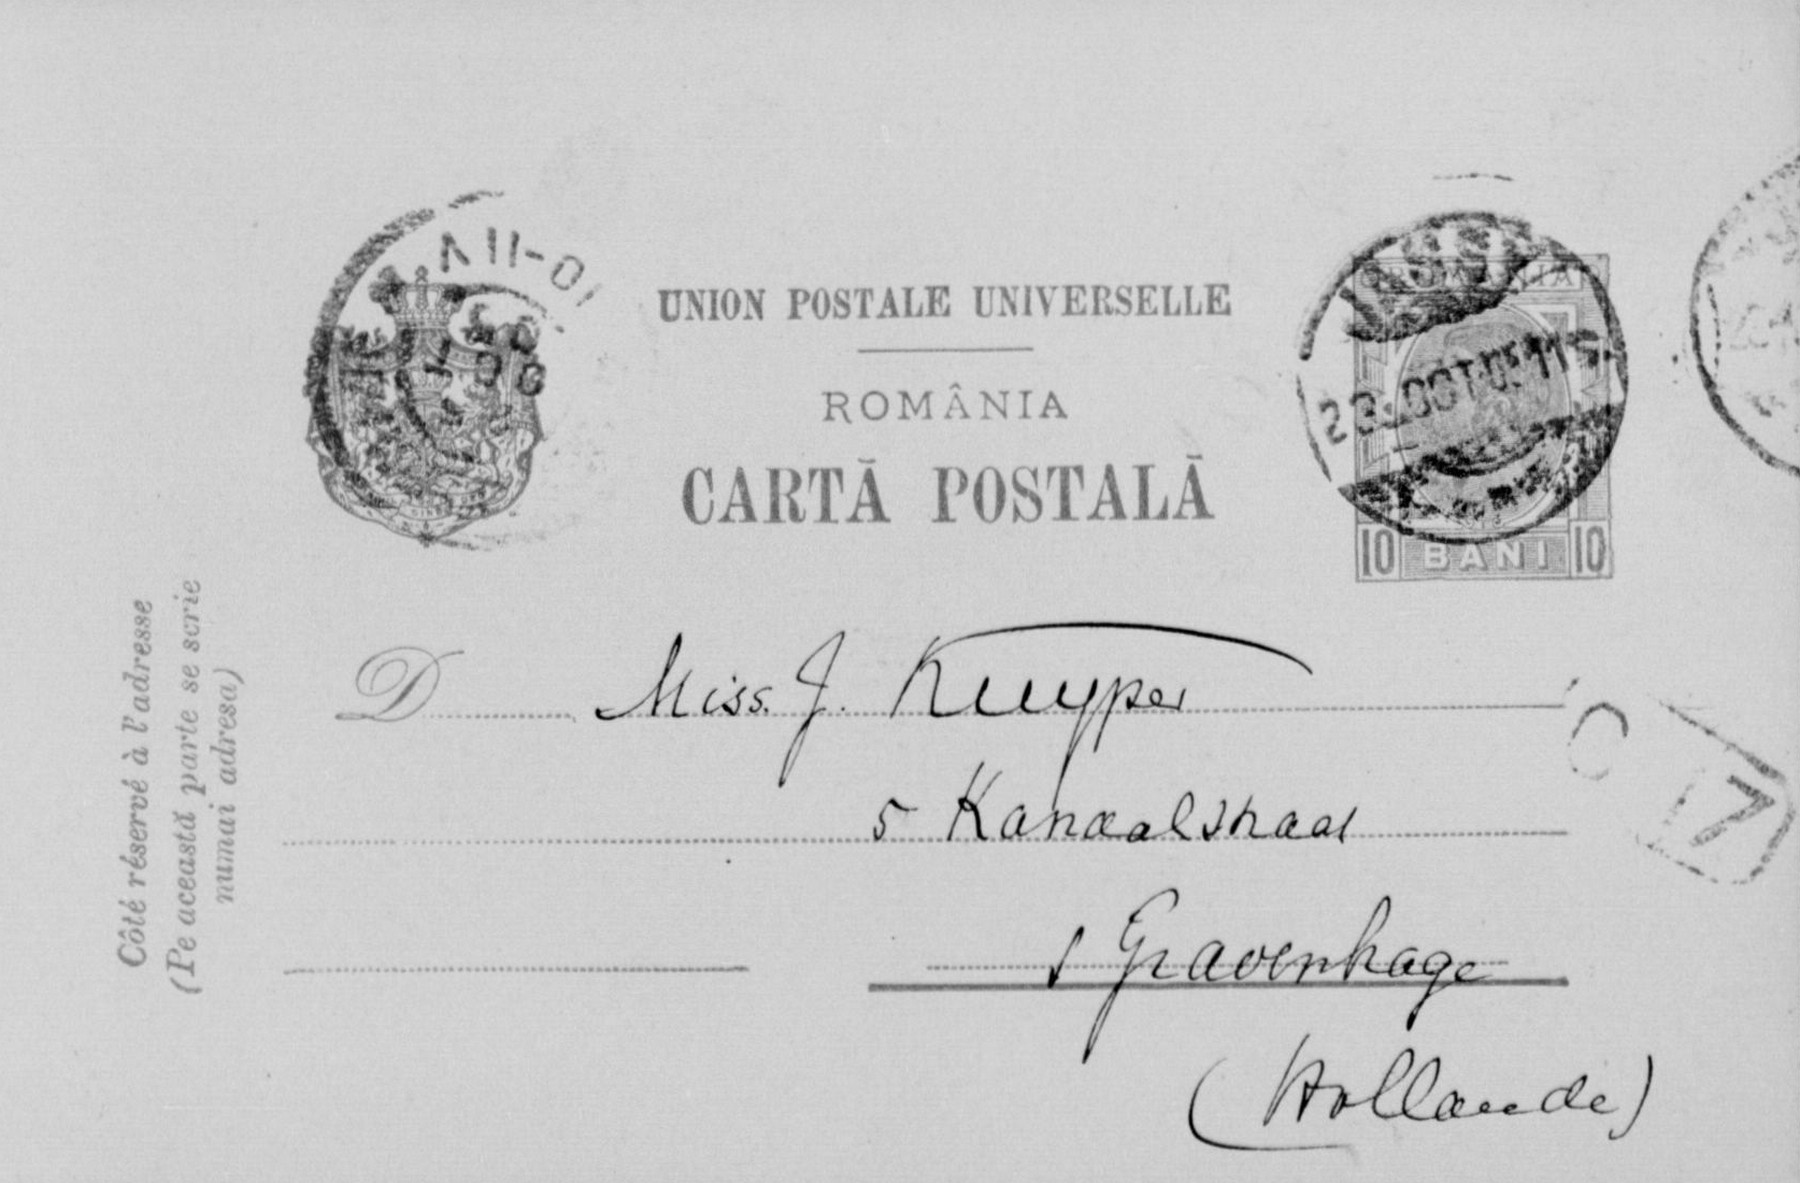 UNION POSTALE UNIVERSELLE
ROMÂNIA
CARTĂ POSTALĂ
10-11 V
JASSY
ROMANIA
23 OCT. 05 11
10 BANI 10
Côté réservé à l'adresse
(Pe această parte se scrie
numai adresa)
D Miss. J. Kuyper
5 Kanaalstraat
s Gravenhage
(Hollande)
17